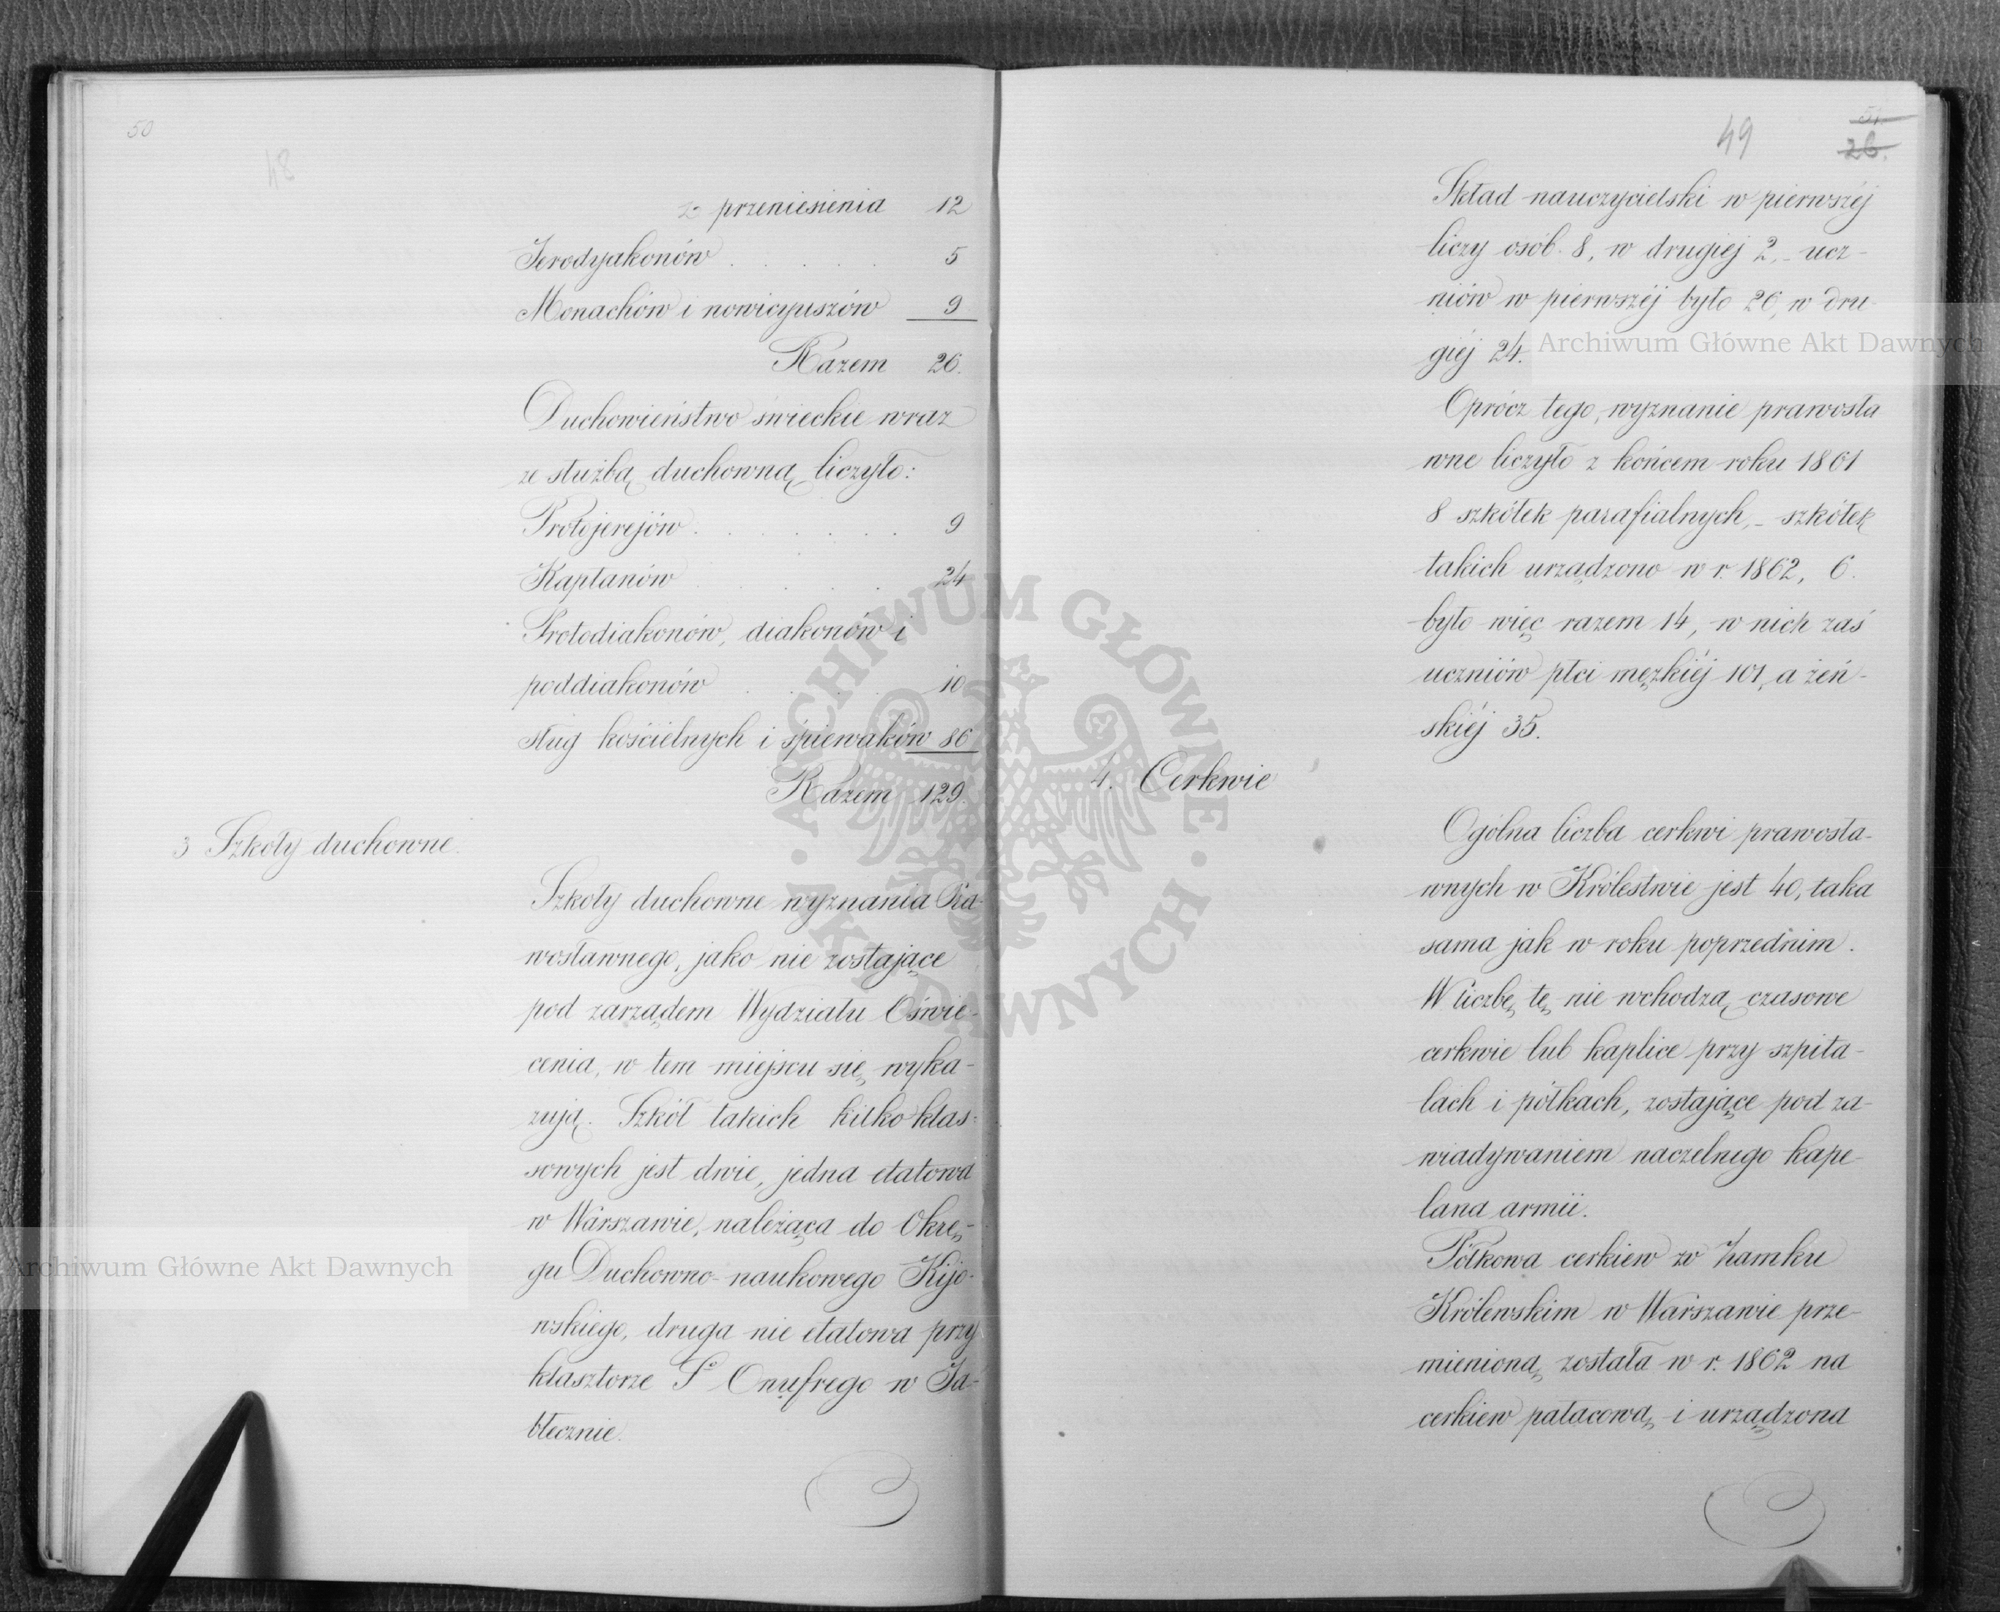 50
48
z przeniesienia 12
Jerodyakonów . . . . . 5
Monachów i nowicyuszów 9
Razem 26.
Duchowieństwo świeckie wraz
ze służbą duchowną liczyło:
Protojerejów . . . . . . . 9
Kapłanów . . . . 24
Protodiakonów, diakonów i
poddiakonów . . . . 10
sług kościelnych i śpiewaków 86
Razem 129.
3 Szkoły duchowne.
Szkoły duchowne wyznania Pra-
wosławnego, jako nie zostające
pod zarządem Wydziału Oświe-
cenia, w tem miejscu się wyka-
zują. Szkół takich kilko klas-
sowych jest dwie, jedna etatowa
w Warszawie, należąca do Okrę-
gu Duchowno-naukowego Kijo-
wskiego, druga nie etatowa przy
klasztorze Sº Onufrego w Ja-
błecznie.
49
51.
26.
Skład nauczycielski w pierwszéj
liczy osób 8, w drugiej 2, - ucz-
niów w pierwszéj było 26, w dru-
giéj 24.
Oprócz tego, wyznanie prawosła
wne liczyło z końcem roku 1861
8 szkółek parafialnych, - szkółek
takich urządzono w r. 1862, 6.
było więc razem 14, w nich zaś
uczniów płci męzkiéj 101, a żeń-
skiéj 35.
4. Cerkwie
Ogólna liczba cerkwi prawosła-
wnych w Królestwie jest 40, taka
sama jak w roku poprzednim.
W liczbę tę nie wchodzą czasowe
cerkwie lub kaplice przy szpita-
lach i półkach, zostające pod za-
wiadywaniem naczelnego kape-
lana armii.
Półkowa cerkiew w Zamku
Królewskim w Warszawie prze-
mienioną została w r. 1862 na
cerkiew pałacową i urządzona
Archiwum Główne Akt Dawnych
Archiwum Główne Akt Dawnych
ARCHIWUM GŁÓWNE · AKT DAWNYCH ·